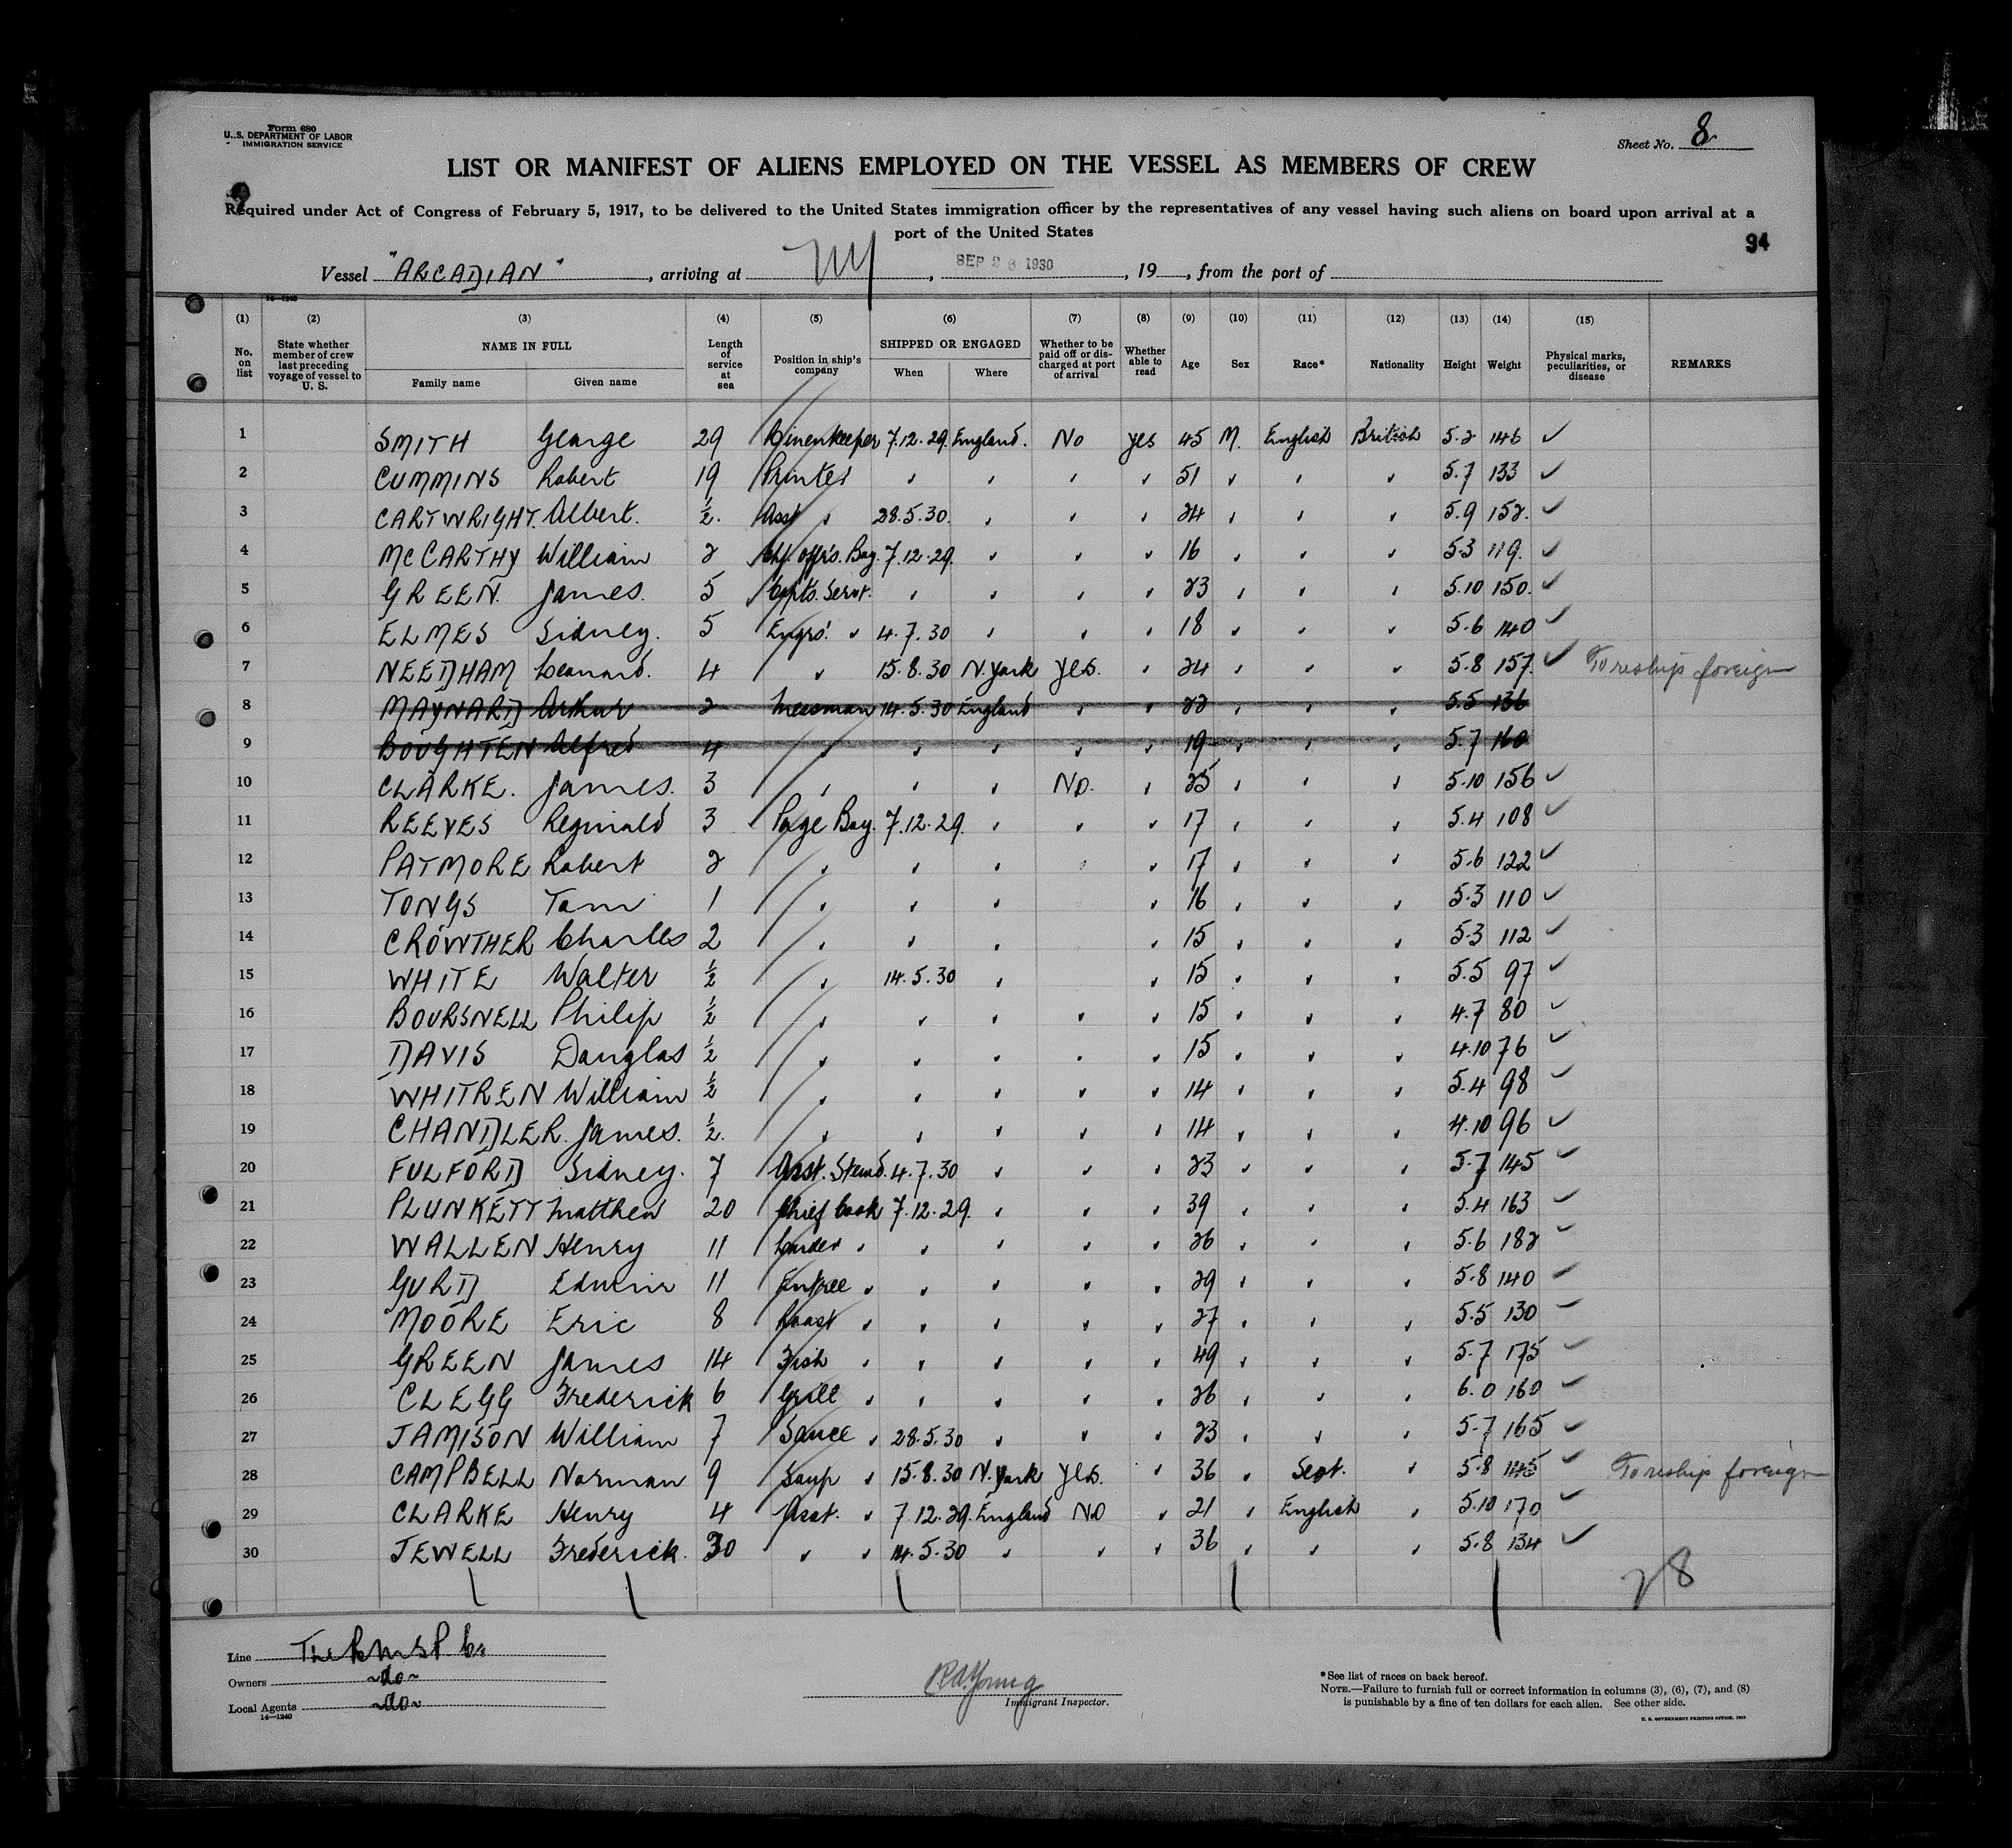 Form 680
U. S. DEPARTMENT OF LABOR
IMMIGRATION SERVICE
Sheet No. 8
LIST OR MANIFEST OF ALIENS EMPLOYED ON THE VESSEL AS MEMBERS OF CREW
Required under Act of Congress of February 5, 1917, to be delivered to the United States immigration officer by the representatives of any vessel having such aliens on board upon arrival at a
port of the United States
94
Vessel "ARCADIAN", arriving at NY, SEP 26 1930, 19, from the port of
14—1240
(1) (2) (3) (4) (5) (6) (7) (8) (9) (10) (11) (12) (13) (14) (15)
No. on list
State whether member of crew last preceding voyage of vessel to U. S.
NAME IN FULL
Family name Given name
Length of service at sea
Position in ship's company
SHIPPED OR ENGAGED
When Where
Whether to be paid off or discharged at port of arrival
Whether able to read
Age Sex Race* Nationality Height Weight
Physical marks, peculiarities, or disease
REMARKS
1 SMITH George 29 Linenkeeper 7.12.29. England. No yes 45 M. English British 5.2 146 ✓
2 CUMMINS Robert 19 Printer " " " " 51 " " " 5.7 133 ✓
3 CARTWRIGHT. Albert. ½. Asst " 28.5.30. " " " 24 " " " 5.9 152. ✓
4 McCARTHY William 2 Chf. Offrs. Boy. 7.12.29. " " " 16 " " " 5.3 119. ✓
5 GREEN. James. 5 Capts. Servt. " " " " 23 " " " 5.10 150. ✓
6 ELMES Sidney. 5 Engrs. " 4.7.30 " " " 18 " " " 5.6 140 ✓
7 NEEDHAM Leonard. 4 " 15.8.30 N. York Yes. " 24 " " " 5.8 157. ✓ To reship foreign
8 MAYNARD Arthur 2 Messman 14.5.30 England " " 22 " " " 5.5 136
9 BOUGHTEN Alfred 4 " " " " " 19 " " " 5.7 160
10 CLARKE. James. 3 " " " No. " 25 " " " 5.10 156 ✓
11 REEVES Reginald 3 Page Boy. 7.12.29. " " " 17 " " " 5.4 108 ✓
12 PATMORE Robert 2 " " " " 17 " " " 5.6 122 ✓
13 TONGS Tom 1 " " " " 16 " " " 5.3 110 ✓
14 CROWTHER Charles 2 " " " " 15 " " " 5.3 112 ✓
15 WHITE Walter ½ " 14.5.30 " " 15 " " " 5.5 97 ✓
16 BOURSNELL Philip ½ " " " " " 15 " " " 4.7 80 ✓
17 DAVIS Douglas ½ " " " " " 15 " " " 4.10 76 ✓
18 WHITREN William ½ " " " " " 14 " " " 5.4 98 ✓
19 CHANDLER. James. ½. " " " " " 14 " " " 4.10 96 ✓
20 FULFORD Sidney. 7 Asst. Stewd. 4.7.30 " " " 23 " " " 5.7 145 ✓
21 PLUNKETT Matthew 20 Chief Cook 7.12.29. " " " 39 " " " 5.4 163 ✓
22 WALLEN Henry 11 Larder " " " " " 26 " " " 5.6 182 ✓
23 GURD Edwin 11 Entree " " " " " 29 " " " 5.8 140 ✓
24 MOORE Eric 8 Roast " " " " " 27 " " " 5.5 130 ✓
25 GREEN James 14 Fish " " " " " 49 " " " 5.7 175 ✓
26 CLEGG Frederick 6 Grill " " " " " 26 " " " 6.0 160 ✓
27 JAMISON William 7 Sauce " 28.5.30 " " " 23 " " " 5.7 165 ✓
28 CAMPBELL Norman 9 Soup " 15.8.30 N. York Yes. " 36 " Scot. " 5.8 145 ✓ To reship foreign
29 CLARKE Henry 4 Asst. " 7.12.29. England No " 21 " English " 5.10 170 ✓
30 JEWELL Frederick. 30 " " 14.5.30 " " " 36 " " " 5.8 134 ✓
28
Line The R M S P. Co
Owners ~do~
Local Agents ~do~
14—1240
R A Young
Immigrant Inspector.
*See list of races on back hereof.
NOTE.—Failure to furnish full or correct information in columns (3), (6), (7), and (8)
is punishable by a fine of ten dollars for each alien. See other side.
U. S. GOVERNMENT PRINTING OFFICE: 1929